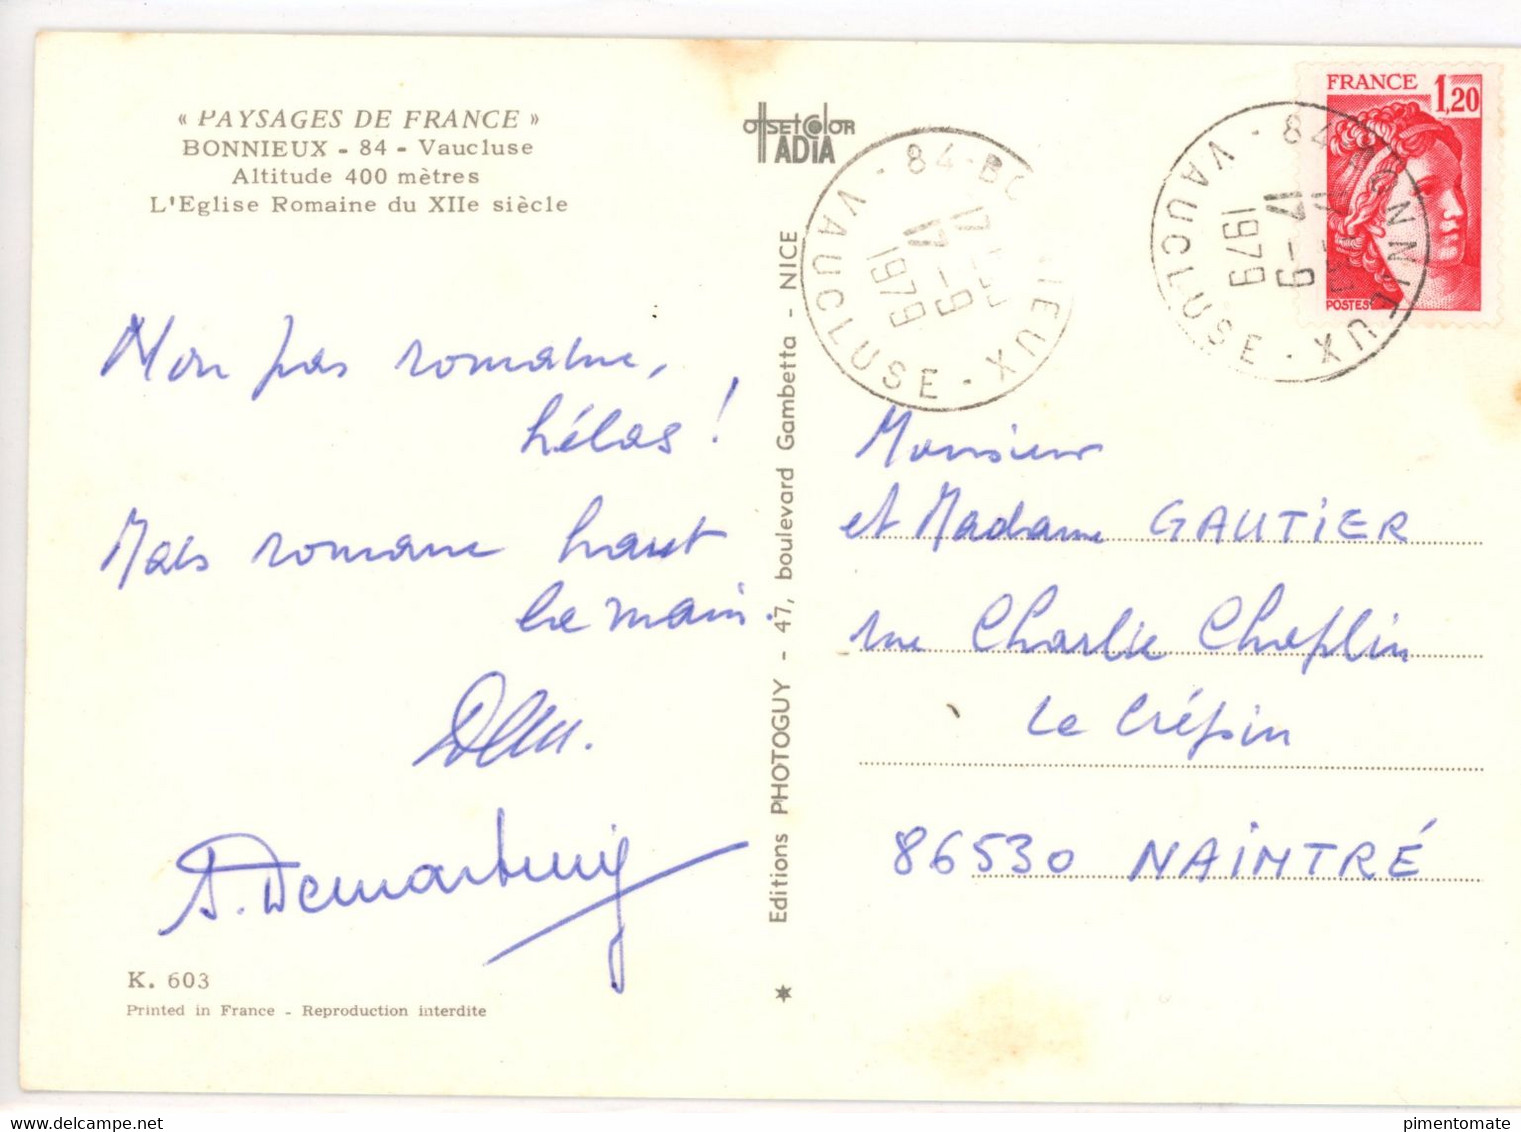 « PAYSAGES DE FRANCE »
BONNIEUX - 84 - Vaucluse
Altitude 400 mètres
L'Eglise Romaine du XIIe siècle
Non pas romaine,
hélas !
Mais romane haut
la main.
A. Demartini
K. 603
Printed in France - Reproduction interdite
OffsetColor
ADIA
Editions PHOTOGUY - 47, boulevard Gambetta - NICE
84-BO IEUX - VAUCLUSE -
17
17-9
1979
84-BONNIEUX - VAUCLUSE -
17
17-9
1979
FRANCE 1,20
POSTES
Monsieur
et Madame GAUTIER
rue Charlie Chaplin
Le Crépin
86530 NAINTRÉ
pimentomate